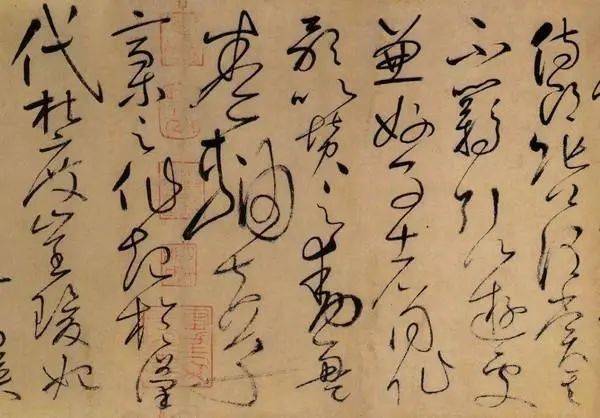 侍郎張公謂賞其
不羈引以遊處
兼好事者同作
歌以贊之動盈
卷軸夫草
稿之作起於漢
代杜度崔瑗始